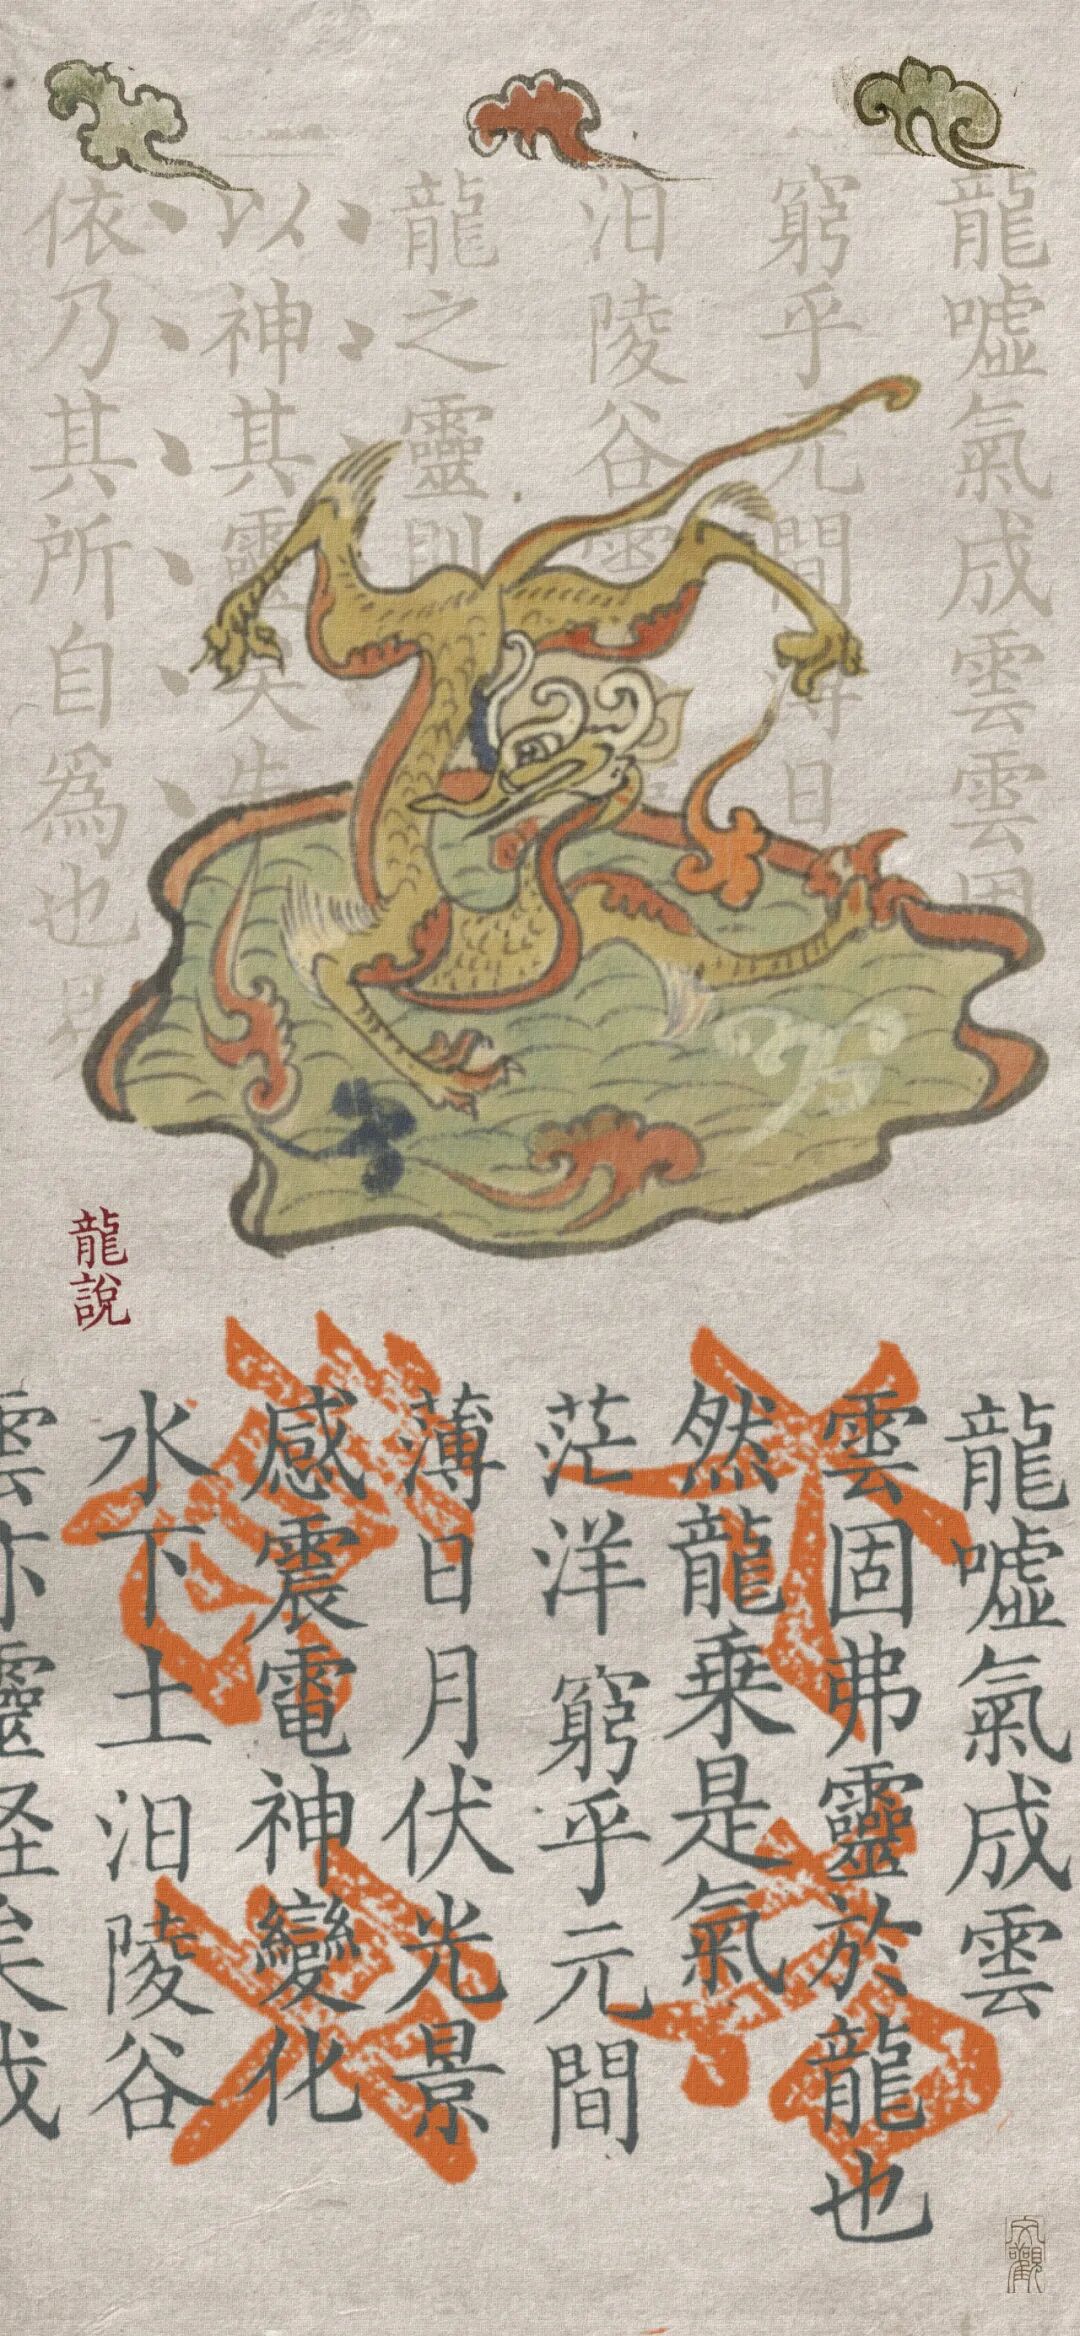 龍嘘氣成雲雲固
窮乎元間薄日
汨陵谷雲
龍之靈則
以神其靈矣失
依乃其所自為也
龍說
龍嘘氣成雲
雲固弗靈於龍也
然龍乗是氣
茫洋窮乎元間
薄日月伏光景
感震電神變化
水下土汨陵谷
雲亦靈怪矣哉
文觀